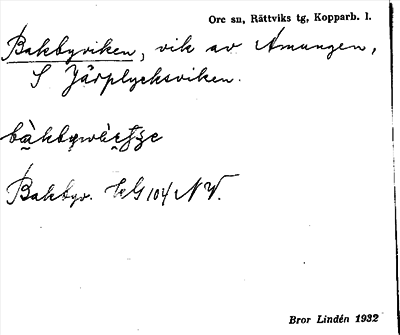 Ore sn, Rättviks tg, Kopparb. l.
Bakbyviken, vik av Amungen,
S Järplycksviken.
Bakbyv. 104 NV.
Bror Lindén 1932